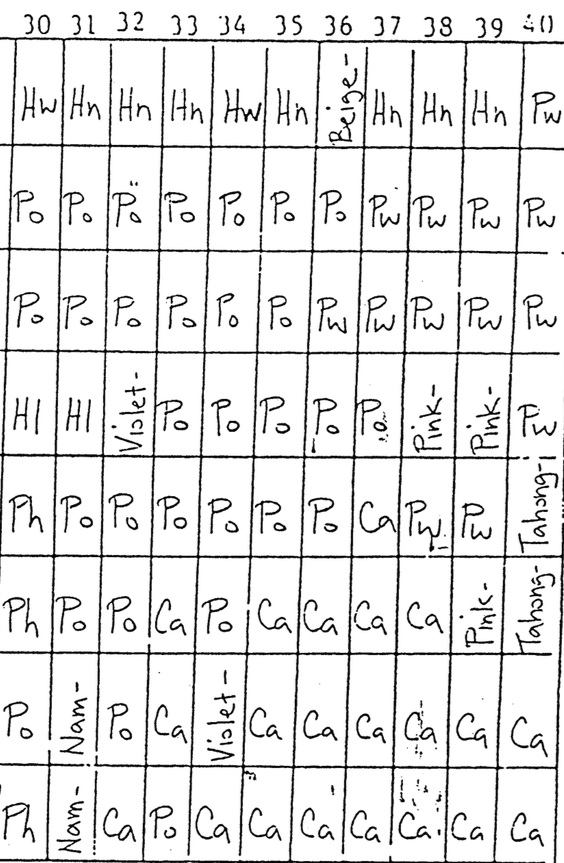 30 31 32 33 34 35 36 37 38 39 40
Hw Hn Hn Hn Hw Hn Beige- Hn Hn Hn Pw
Po Po Po Po Po Po Po Pw Pw Pw Pw
Po Po Po Po Po Po Pw Pw Pw Pw Pw
Hl Hl Violet- Po Po Po Po Po Pink- Pink- Pw
Ph Po Po Po Po Po Po Ca Pw Pw Tahong-
Ph Po Po Ca Po Ca Ca Ca Ca Pink- Tahong-
Po Nam- Po Ca Violet- Ca Ca Ca Ca Ca Ca
Ph Nam- Ca Po Ca Ca Ca Ca Ca Ca Ca